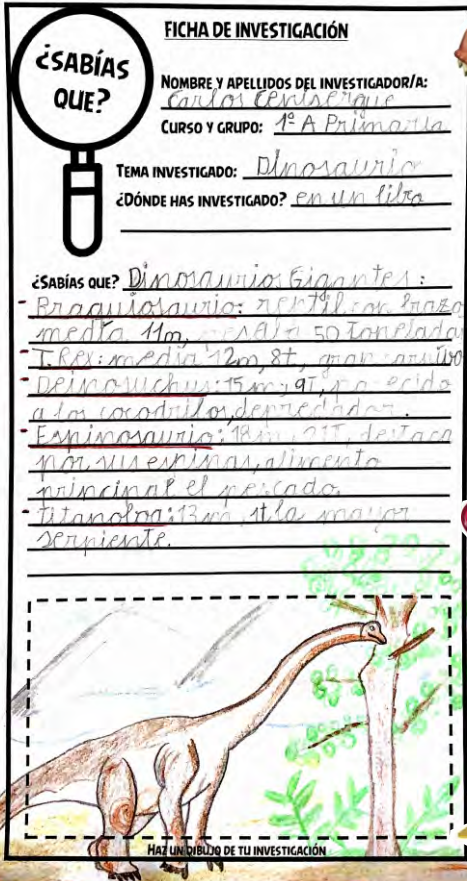 FICHA DE INVESTIGACIÓN
¿SABÍAS
QUE?
NOMBRE Y APELLIDOS DEL INVESTIGADOR/A:
Carlos
CURSO Y GRUPO: 1º A Primaria
TEMA INVESTIGADO: Dinosaurio
¿DÓNDE HAS INVESTIGADO? en un libro
¿SABÍAS QUE? Dinosaurios Gigantes:
- Braquiosaurio: reptil con brazo
medía 11m, pesaba 50 Toneladas
- T.Rex: medía 12m, 8t, gran
- Deinosuchus: 15m, 9T, parecido
a los cocodrilos, depredador.
- Espinosaurio: 18m, 21T, destaca
por sus espinas, alimento
principal el pescado.
- titanoboa: 13m, 1t la mayor
serpiente.
HAZ UN DIBUJO DE TU INVESTIGACIÓN